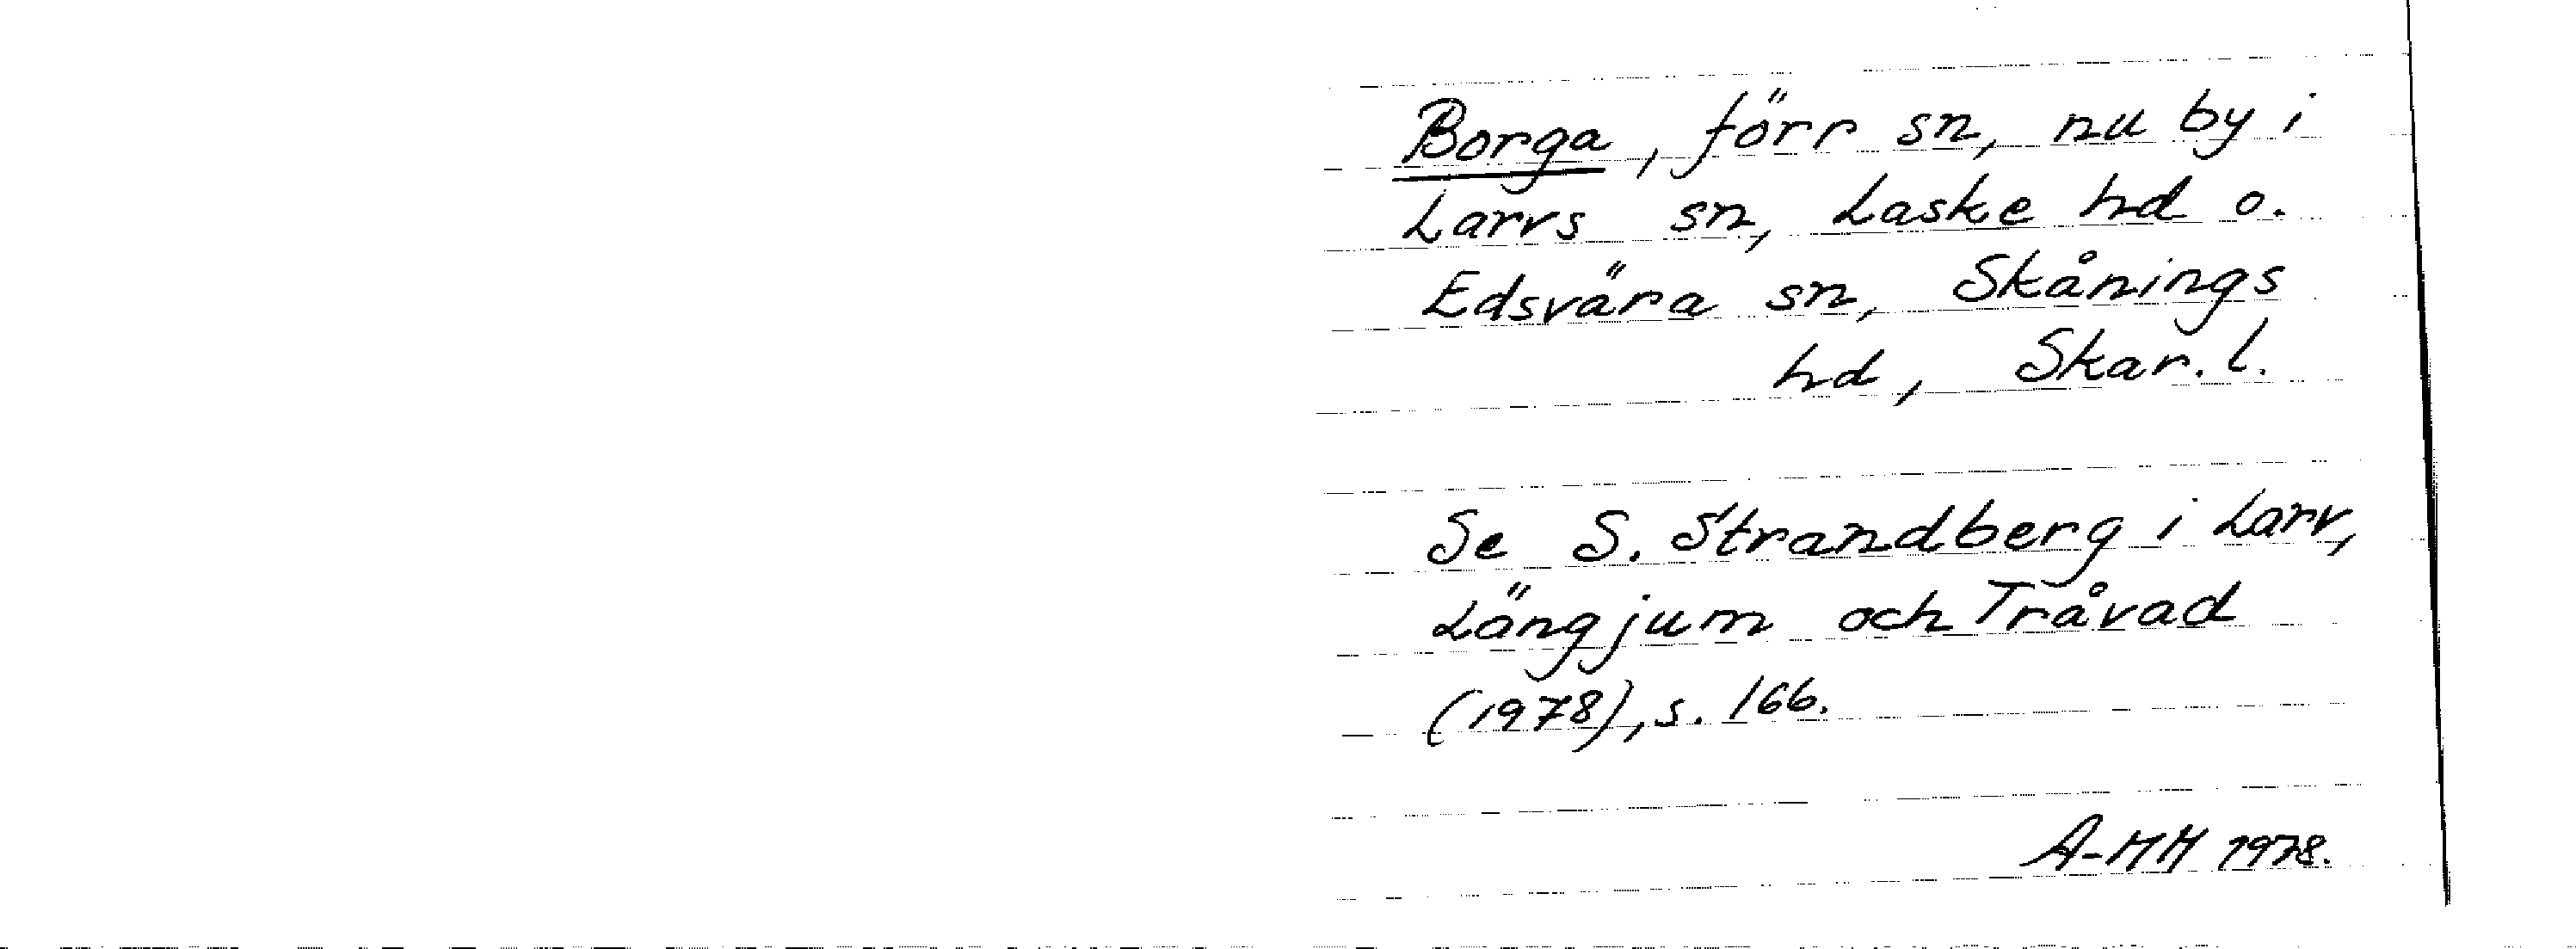 Borga, förr sn, nu by i
Larvs sn, Laske hd o.
Edsvära sn, Skånings
hd, Skar. l.
Se S. Strandberg i Larv,
Längjum och Tråvad
(1978), s. 166.
A-MH 1978.